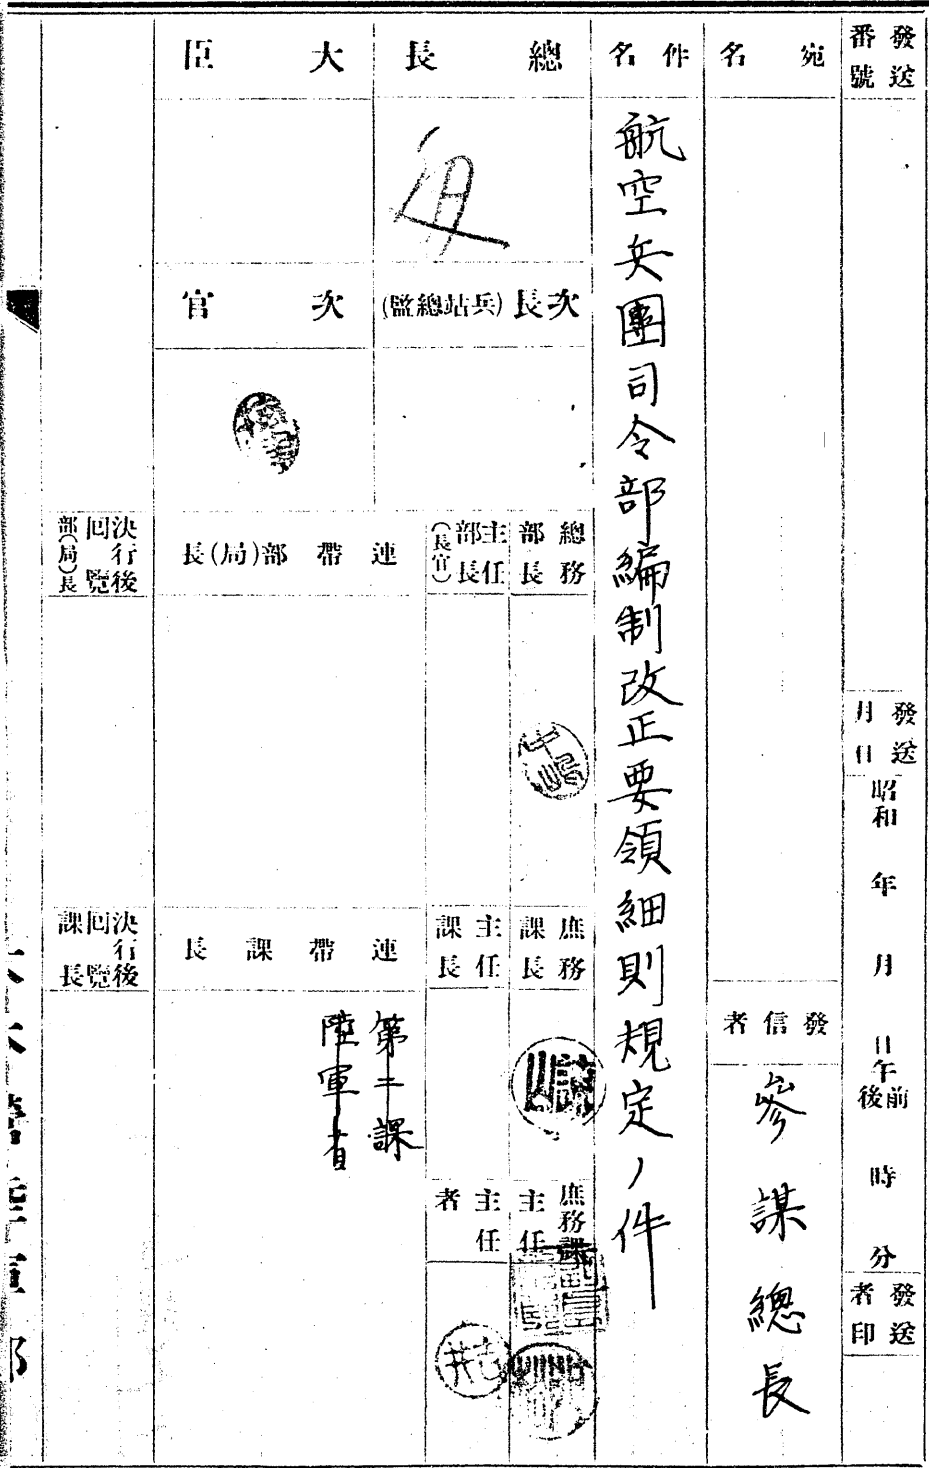 發送番號
發送月日
昭和 年 月 日 午前後 時 分
發送者印
宛名
發信者
參謀總長
件名
航空兵團司令部編制改正要領細則規定ノ件
總長
次長(兵站總監)
總務部長
主任部長(長官)
庶務課長
主任課長
庶務課主任
主任者
大臣
次官
連帶部(局)長
連帶課長
第二課
陸軍省
決行後回覽部(局)長
決行後回覽課長